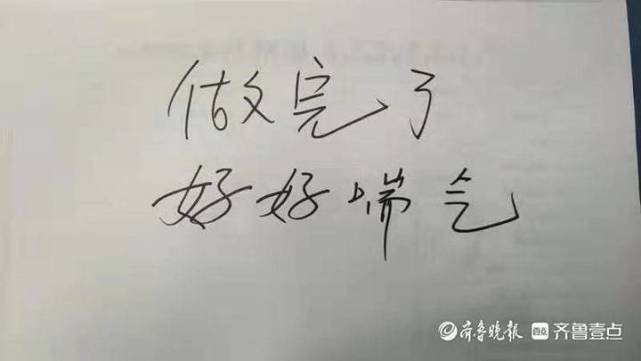 做完了
好好喘气
齐鲁晚报 齐鲁壹点